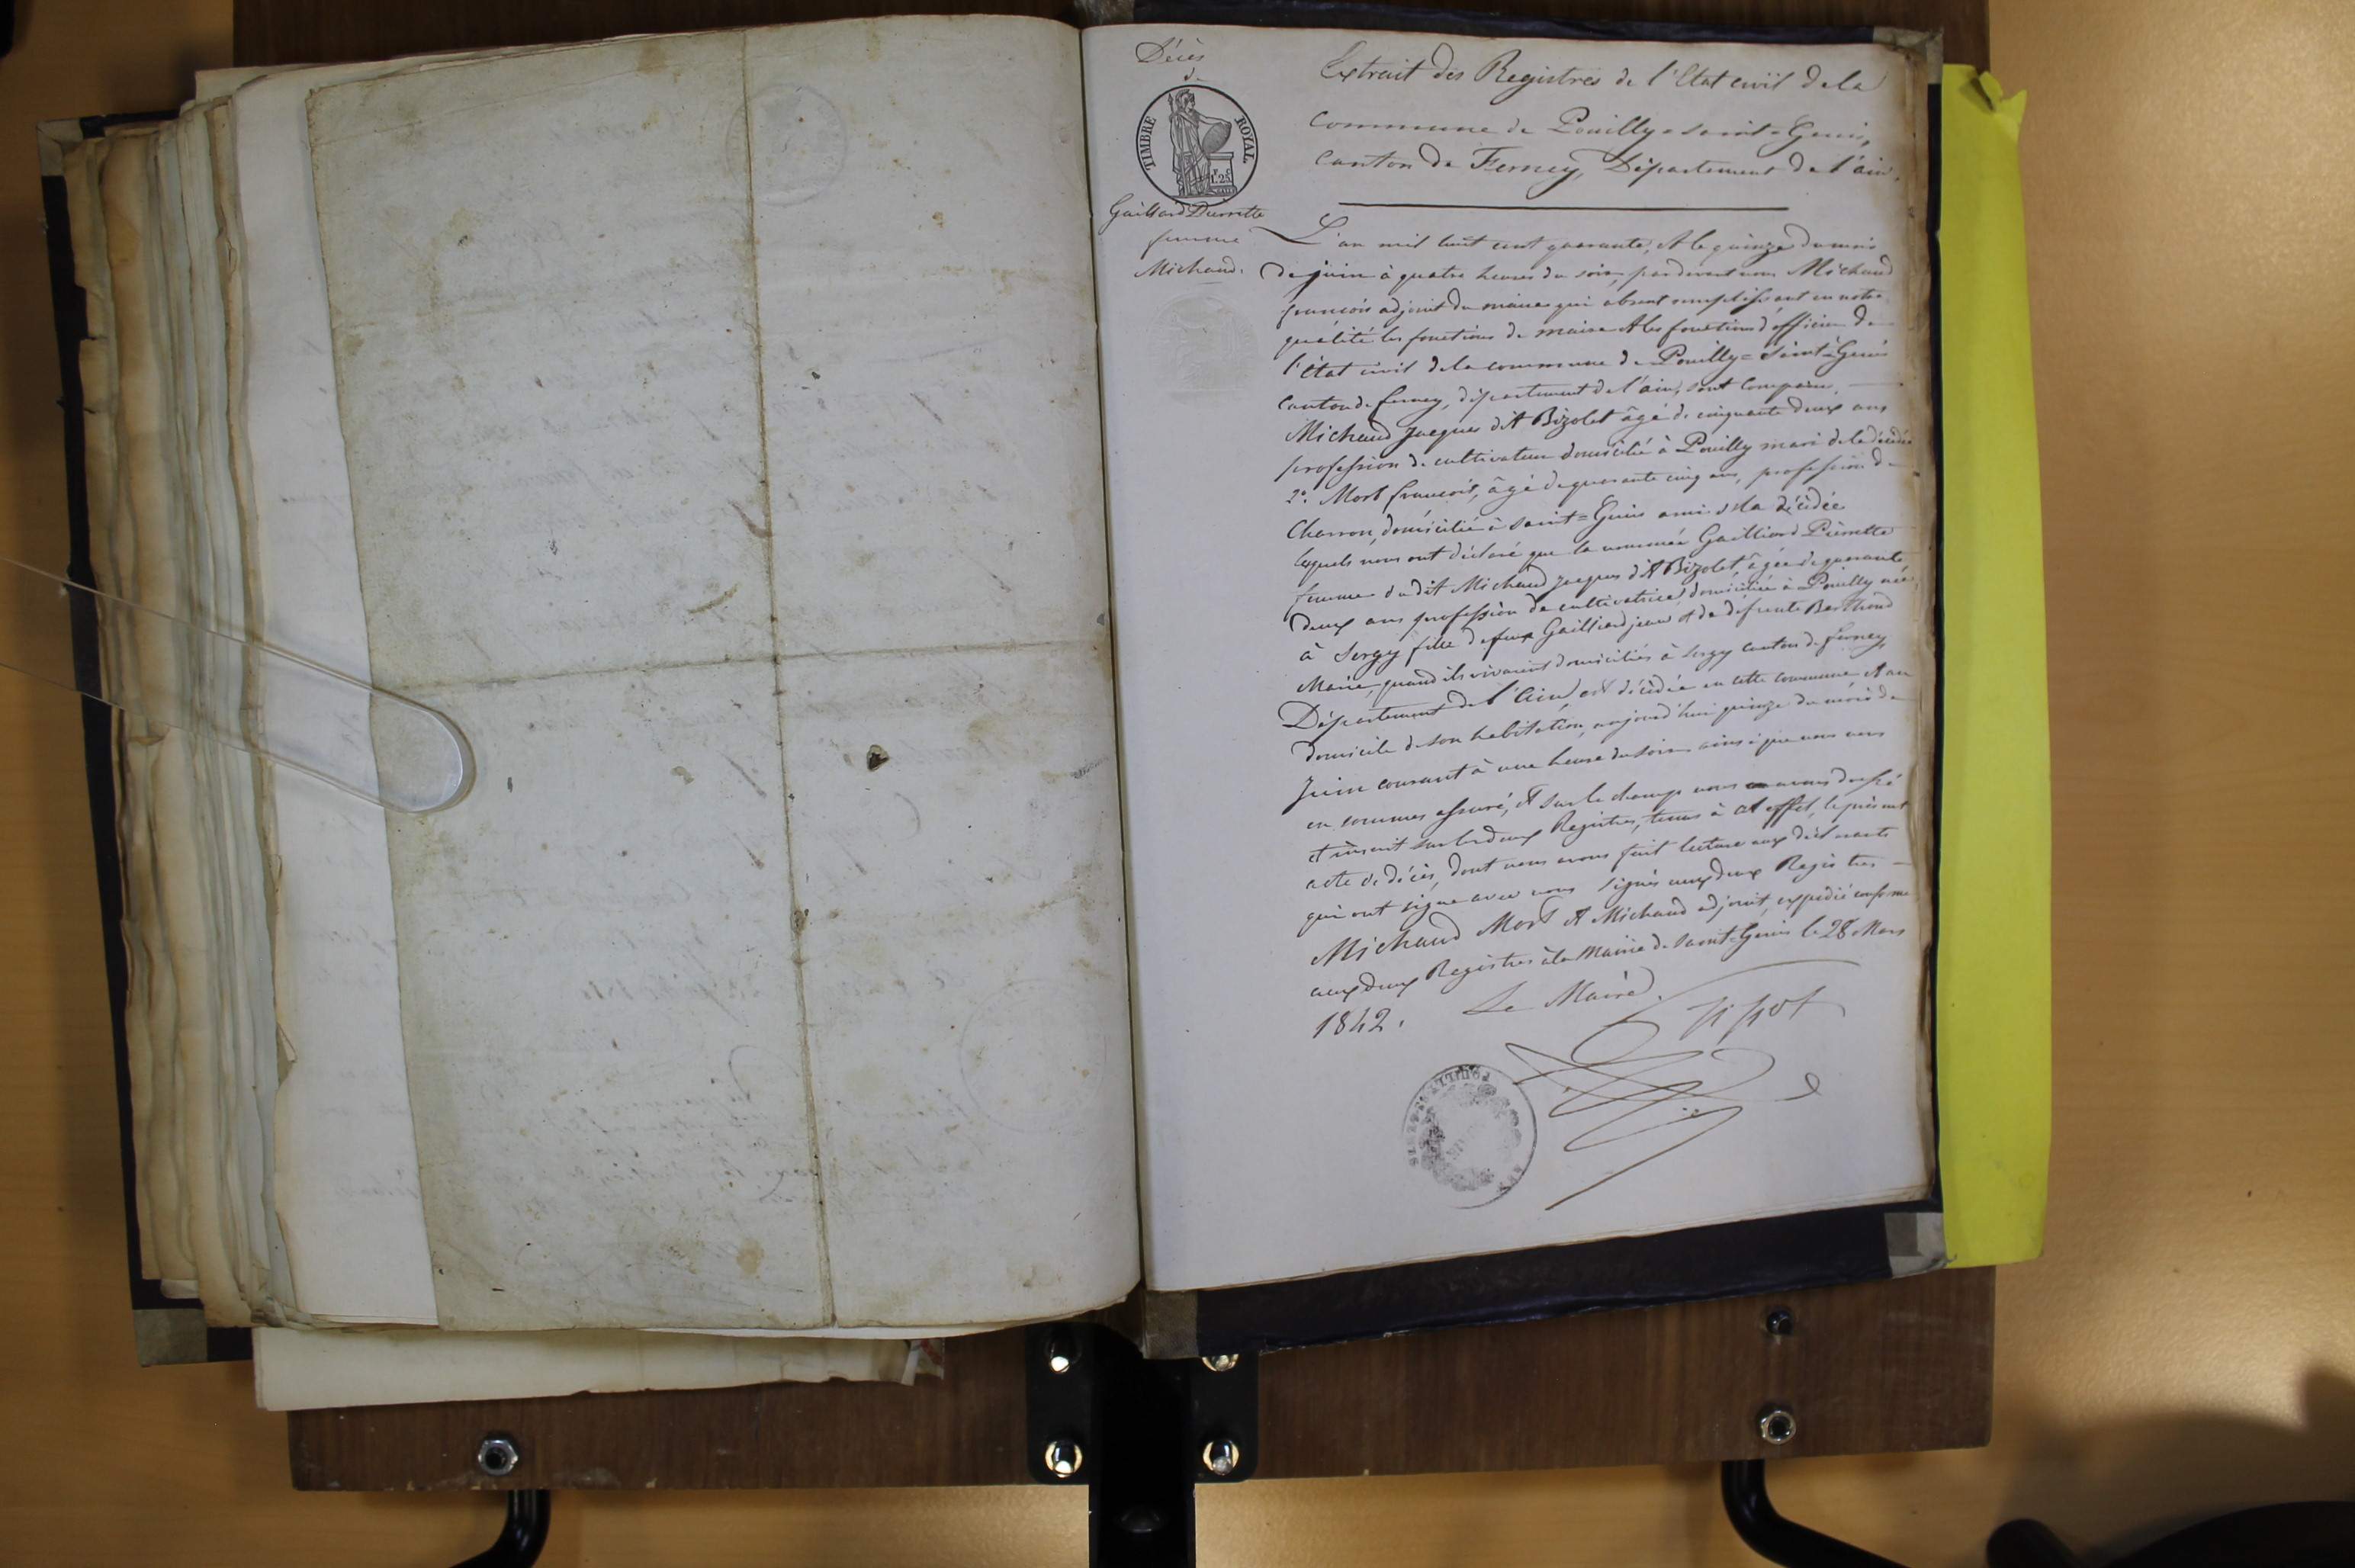 Décès
de
TIMBRE ROYAL
1.25
Gaillard Pierrette
femme
Michaud.
Extrait des Registres de l'Etat civil de la
commune de Pouilly=saint=Genis,
canton de Ferney, Département de l'ain.
L'an mil huit cent quarante, et le quinze du mois
de juin à quatre heures du soir, pardevant nous Michaud
françois adjoint du maire qui absent remplissant en notre
qualité les fonctions de maire et les fonctions d'officier de
l'état civil de la commune de Pouilly=Saint=Genis
canton de ferney, département de l'ain, sont comparu
Michaud Jacques dit Bizolet âgé de cinquante deux ans
profession de cultivateur domicilié à Pouilly mari de la décédée
2º. Mort françois, âgé de quarante cinq ans, profession de
Charron, domicilié à saint=Genis ami de la décédée
lesquels nous ont déclaré que la nommée Gailliard Pierrette
femme du dit Michaud jacques dit Bizolet, âgée de quarante
deux ans profession de cultivatrice, domiciliée à Pouilly née
à Sergy fille de feux Gailliard jean et de défunte Berthoud
Marie, quand ils vivaient domiciliés à Sergy canton de ferney,
Département de l'Ain, est décédée en cette commune et au
domicile de son habitation, aujourd'hui quinze du mois de
Juin courant à une heure du soir ainsi que nous nous
en sommes assuré, et sur le champ nous avons dressé
et inscrit sur les deux Registres, tenus à cet effet, le présent
acte de décès, dont nous avons fait lecture aux déclarants
qui ont signé avec nous signés aux deux Registres
Michaud Mort et Michaud adjoint, expédié conforme
aux deux Registres à la Mairie de saint-Genis le 28 Mars
1842. Le Maire
POUILLY